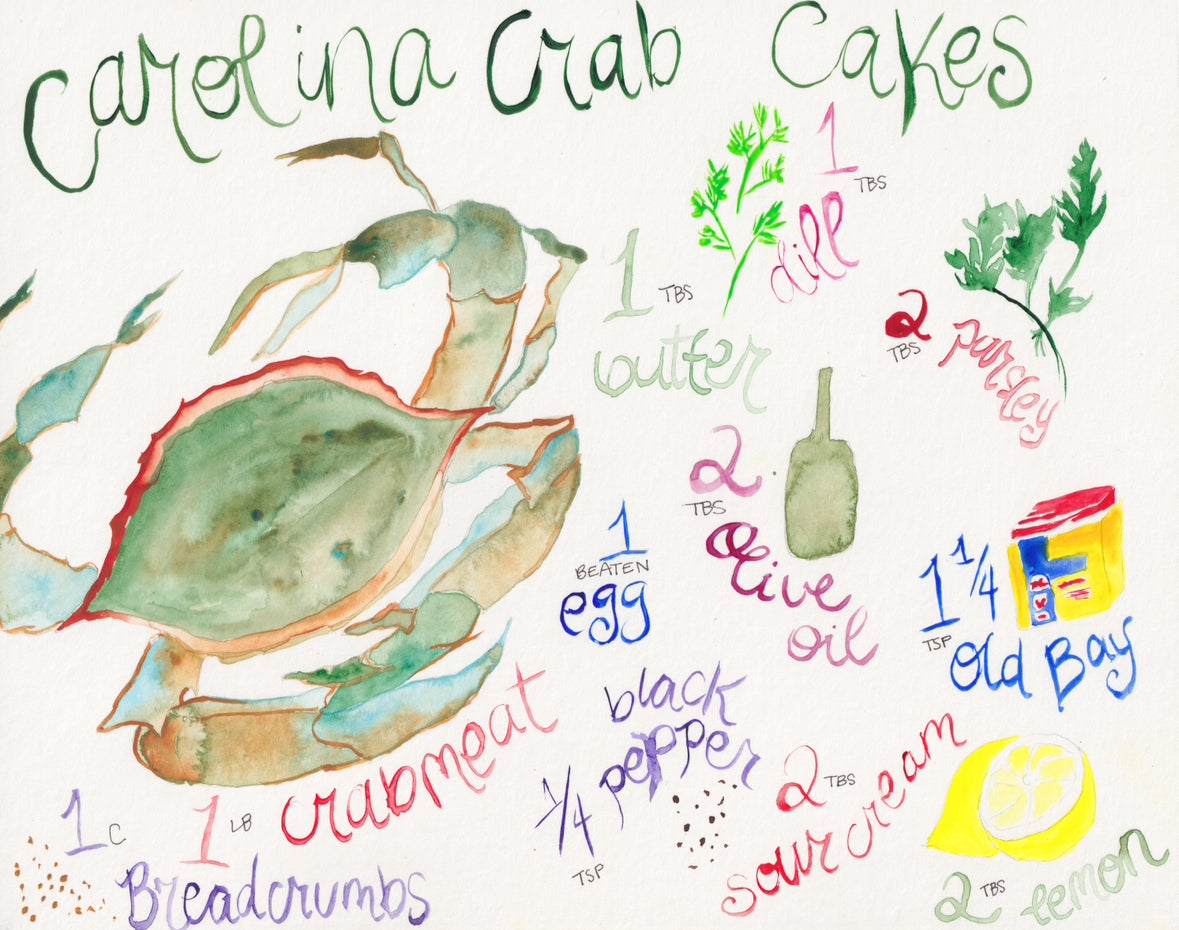 Carolina Crab Cakes
1 TBS
dill
1 TBS
butter
2 TBS
parsley
2 TBS
Olive
oil
1
BEATEN
egg
1 1/4
TSP
Old Bay
black
pepper
1/4
TSP
2 TBS
sour cream
2 TBS
lemon
1 LB
crabmeat
1 C
Breadcrumbs